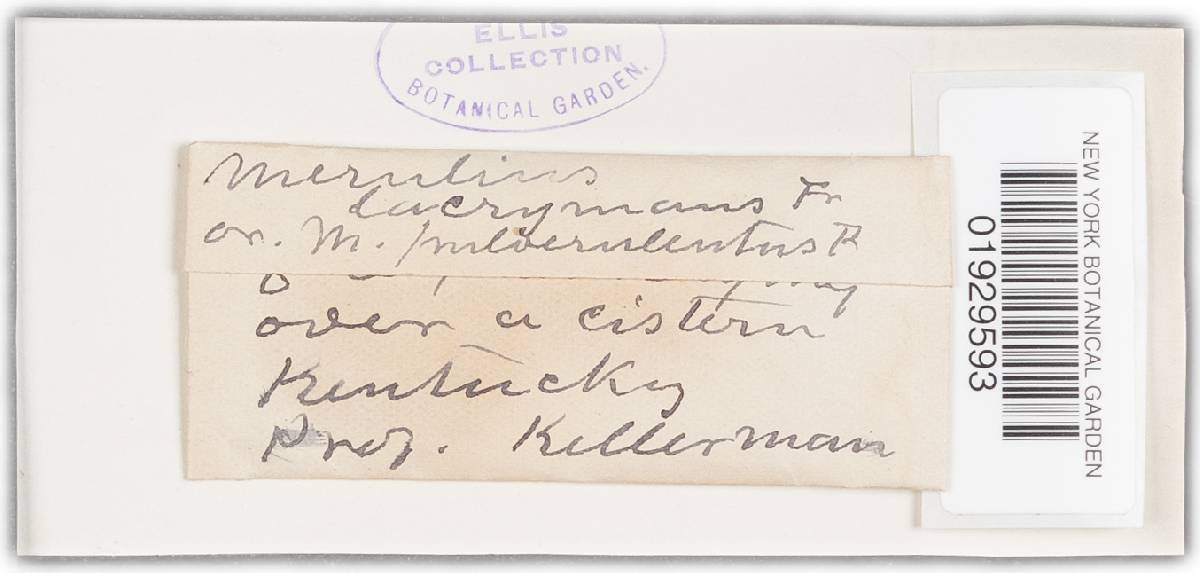 ELLIS
COLLECTION
BOTANICAL GARDEN.
Merulius
Lacrymans Fr
or. M. pulverulentus Fr
over a cistern
Kentucky
Prof. Kellerman
NEW YORK BOTANICAL GARDEN
01929593